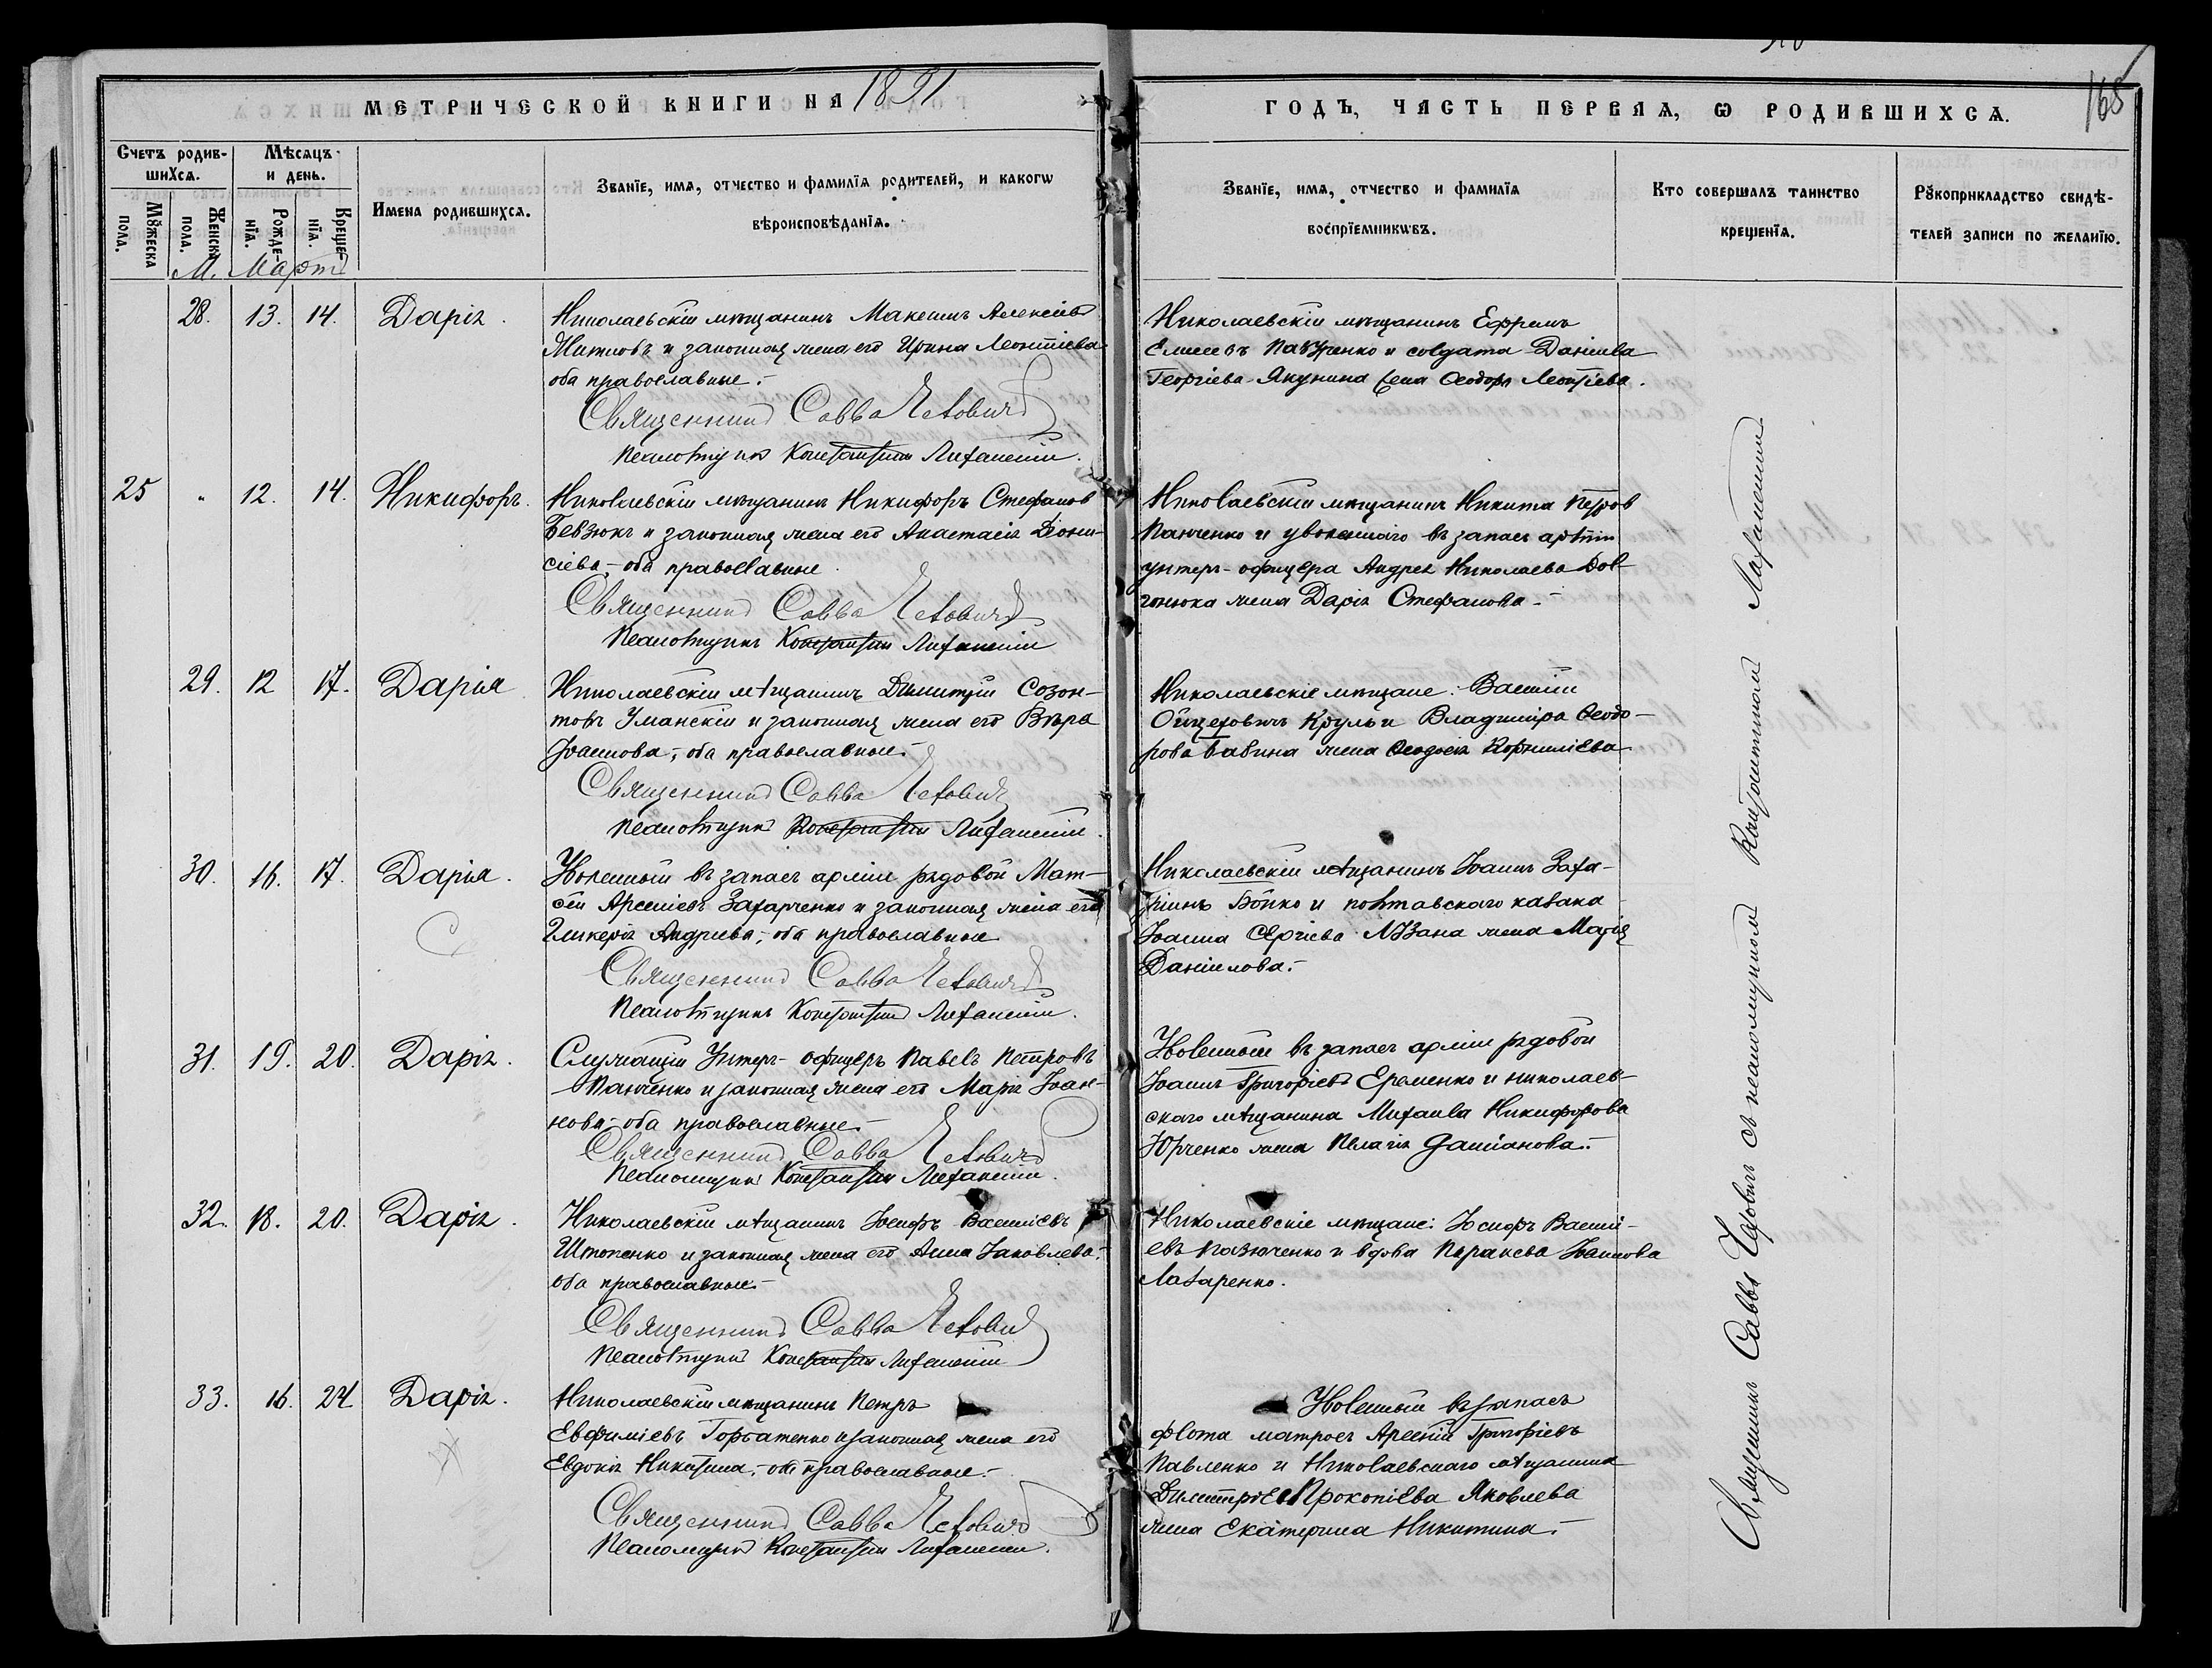 МЕТРИЧЕСКОЙ КНИГИ НА 1891
ГОДЪ, ЧАСТЬ ПЕРВАЯ, Ѡ РОДИВШИХСѦ.
168
Счетъ родив-
шихсѧ.
Мѣсѧцъ
и день.
Мꙋжеска
пола.
Женска
пола.
Рожде-
нїѧ.
Креще-
нїѧ.
Имена родившихсѧ.
Званїе, имѧ, отчество и фамилїѧ родителей, и какогѡ
вѣроисповѣданїѧ.
Званїе, имѧ, отчество и фамилїѧ
воспрїемникѡвъ.
Кто совершалъ таинство
крещенїѧ.
Рꙋкоприкладство свидѣ-
телей записи по желанїю.
М. Мартъ
28. 13. 14. Дарія.
Николаевскій мѣщанинъ Максимъ Алексіевъ
и законная жена его Ирина Леонтіева
оба православные.-
Священникъ Савва Чехович
Псаломщикъ Константин
Николаевскій мѣщанинъ Ефремъ
Елисеевъ и солдата Даніила
Георгіева Якунина жена Ѳеодора Леонтіева.
25 " 12. 14. Никифоръ.
Николаевскій мѣщанинъ Никифоръ Стефанов
Бевзюкъ и законная жена его Анастасія Діони-
сіева,- оба православные
Священникъ Савва Чехович
Псаломщикъ Константин
Николаевскій мѣщанинъ Никита Петров
Панченко и уволеннаго въ запасъ арміи
унтеръ-офицера Андрея Николаева Дов-
гонюка жена Дарія Стефанова.-
29. 12 17. Дарія
Николаевскій мѣщанинъ Димитрій Созон-
товъ Уманскій и законная жена его Вѣра
Іоаннова,- оба православные.-
Священникъ Савва Чехович
Псаломщикъ Константин
Николаевскіе мѣщане: Василій
Круль и Владиміра Ѳеодо-
рова Бабина жена Ѳеодосія Корниліева
30. 16. 17. Дарія.
Уволенный въ запасъ арміи рядовой Мат-
ѳей Арсеніевъ Захарченко и законная жена его
Гликерія Андреева,- оба православные
Священникъ Савва Чехович
Псаломщикъ Константин
Николаевскій мѣщанинъ Іоаннъ Заха-
ріинъ Бойко и полтавского казака
Іоанна Сергіева жена Марія
Даніилова.-
31. 19. 20. Дарія.
Служащій Унтеръ-офицеръ Павелъ Петровъ
Панченко и законная жена его Марія Іоан-
нова оба православные.-
Священникъ Савва Чехович
Псаломщикъ Константин
Уволенный въ запасъ арміи рядовой
Іоаннъ Григоріевъ Еременко и николаев-
скаго мѣщанина Михаила Никифорова
Юрченко жена Пелагія Даміанова.-
32. 18. 20. Дарія.
Николаевскій мѣщанинъ Іосифъ Василіевъ
Штопенко и законная жена его Анна Іаковлева,-
оба православные.-
Священникъ Савва Чехович
Псаломщикъ Константин
Николаевскіе мѣщане: Іосифъ Василі-
евъ и вдова Параксева Іоаннова
Лазаренко.
33. 16. 24 Дарія.
Николаевскій мѣщанинъ Петръ
Евфиміевъ Горбатенко и законная жена его
Евдокія Никитина,- оба православные.-
Священникъ Савва Чехович
Псаломщикъ Константин
Уволенный въ запасъ
флота матросъ Арсеній Григоріевъ
Павленко и Николаевскаго мѣщанина
Димитрія Прокопіева Яковлева
жена Екатерина Никитина.-
Священникъ Савва Чеховичъ съ псаломщикомъ Константином